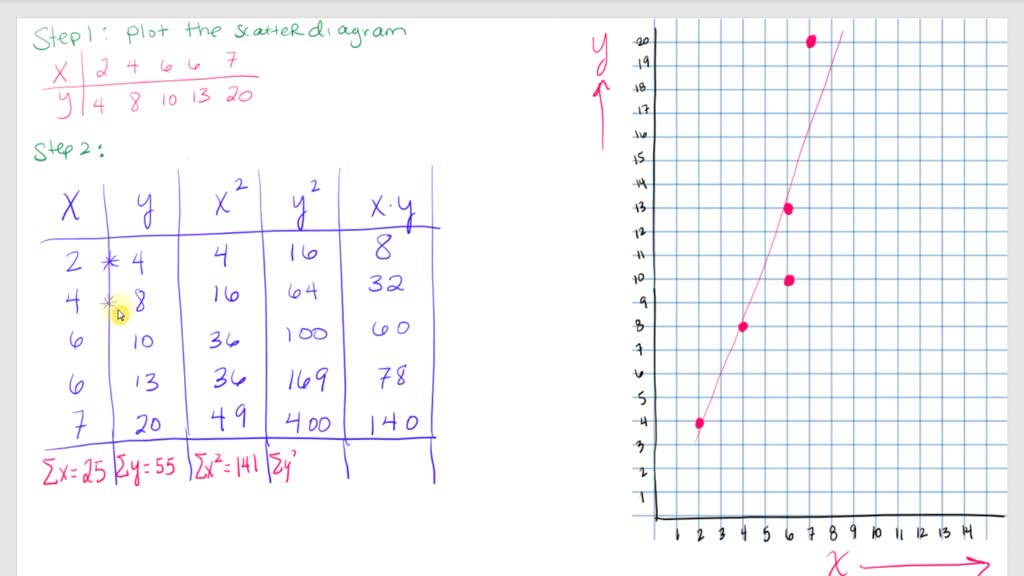 Step 1: plot the scatter diagram
x 2 4 6 6 7
y 4 8 10 13 20
Step 2:
x y x² y² x·y
2 * 4 4 16 8
4 * 8 16 64 32
6 10 36 100 60
6 13 36 169 78
7 20 49 400 140
Σx=25 Σy=55 Σx²=141 Σy²
y
20
19
18
17
16
15
14
13
12
11
10
9
8
7
6
5
4
3
2
1
1 2 3 4 5 6 7 8 9 10 11 12 13 14
x